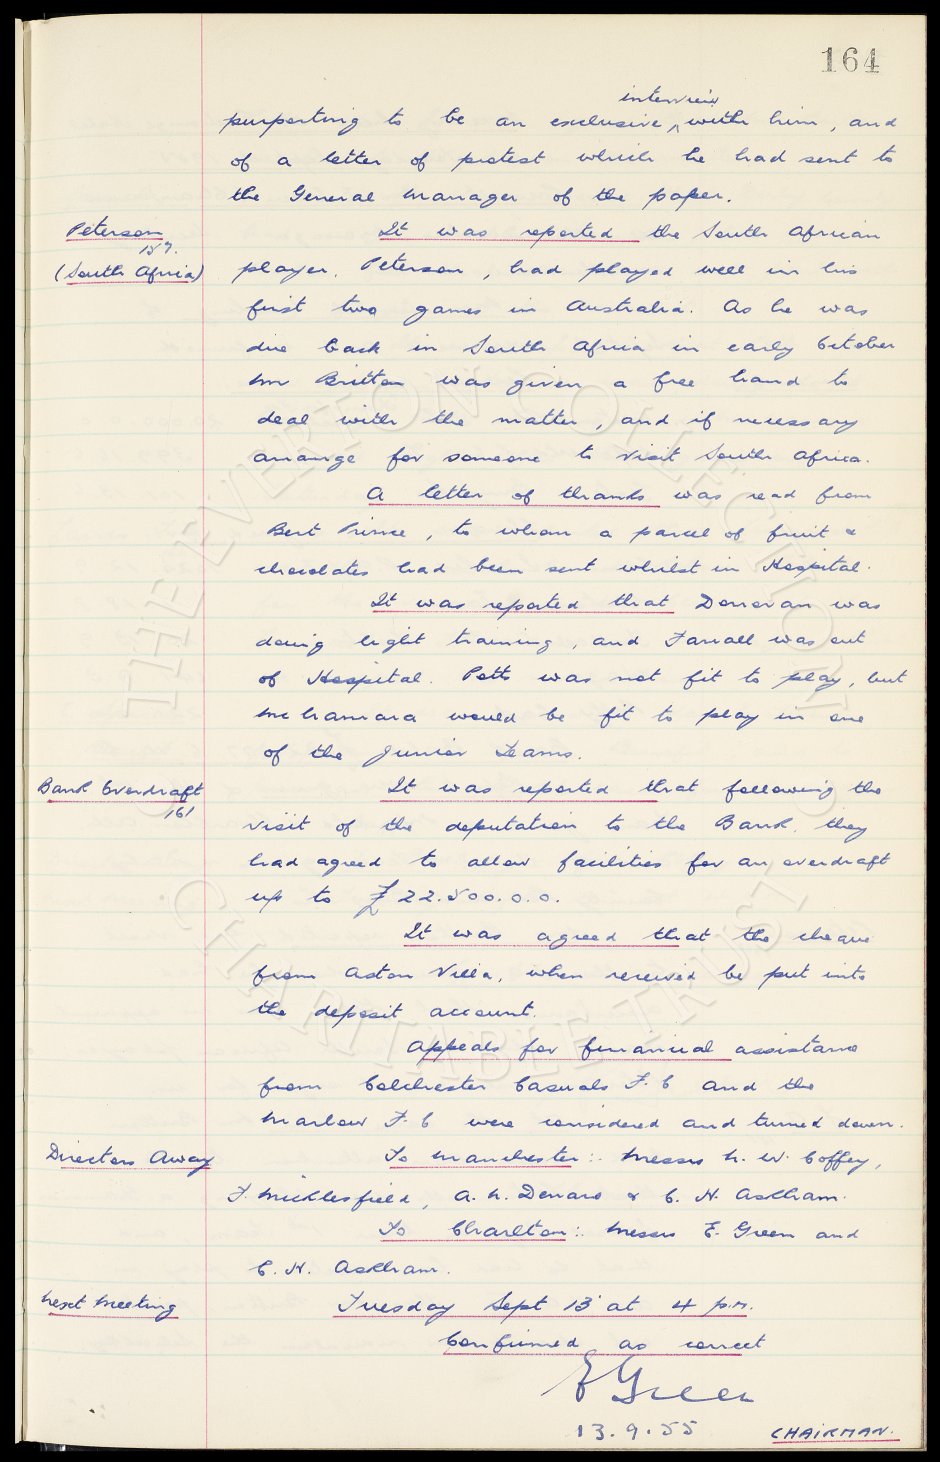 164
interview
purporting to be an exclusive ^ with him, and
of a letter of protest which he had sent to
the General Manager of the paper.
Peterson
157.
(South Africa)
It was reported the South African
player, Peterson, had played well in his
first two games in Australia. As he was
due back in South Africa in early October
Mr Britton was given a free hand to
deal with the matter, and if necessary
arrange for someone to visit South Africa.
A letter of thanks was read from
Bert Prince, to whom a parcel of fruit &
chocolates had been sent whilst in Hospital.
It was reported that Donovan was
doing light training, and Farrall was out
of Hospital. Potts was not fit to play, but
McNamara would be fit to play in one
of the Junior Teams.
Bank Overdraft
161
It was reported that following the
visit of the deputation to the Bank, they
had agreed to allow facilities for an overdraft
up to £22.500.0.0.
It was agreed that the cheque
from Aston Villa, when received be put into
the deposit account.
Appeals for financial assistance
from Colchester Casuals F.C and the
Marlow F.C were considered and turned down.
Directors Away
To Manchester:- Messrs N. W. Coffey,
F. Micklesfield, A. L. Denaro & C. H. Askham.
To Charlton:- Messrs E. Green and
C. H. Askham.
Next Meeting
Tuesday Sept 13 at 4 p.m.
Confirmed as correct
E Green
13.9.55
CHAIRMAN.
THE EVERTON COLLECTION
CHARITABLE TRUST